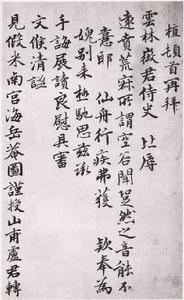 植頓首再拜
雲林嶽君侍史 比辱
遠賁荒寂所謂空谷聞跫然之音能不
意耶 仙舟行疾弗獲 欵奉為
媿別来極馳思茲承
手誨展讀良慰具審
文候清謐
見假米南宮海岳菴圖謹授山甫盧君轉